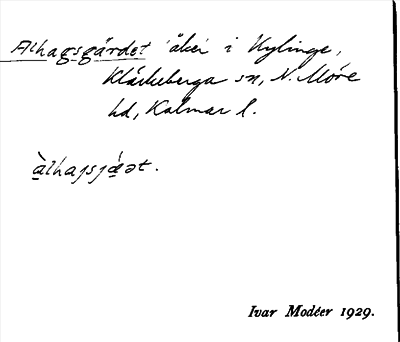 Alhagsgärdet åker i Kylinge,
Kläckeberga sn, N. Möre
hd, Kalmar l.
àlhajsjǽət.
Ivar Modéer 1929.